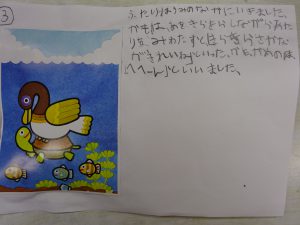 3
ふたりはうみのなかにいきました。
かもは、めをきらきらしながらあたり
を、みわたすとほらきらきさかな
がきれいねといった。かも、かめのは
「へへーん」といいました。